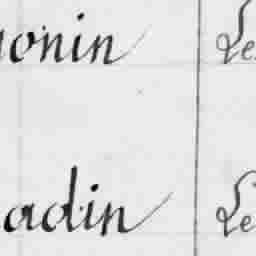 onin Le
adin Le